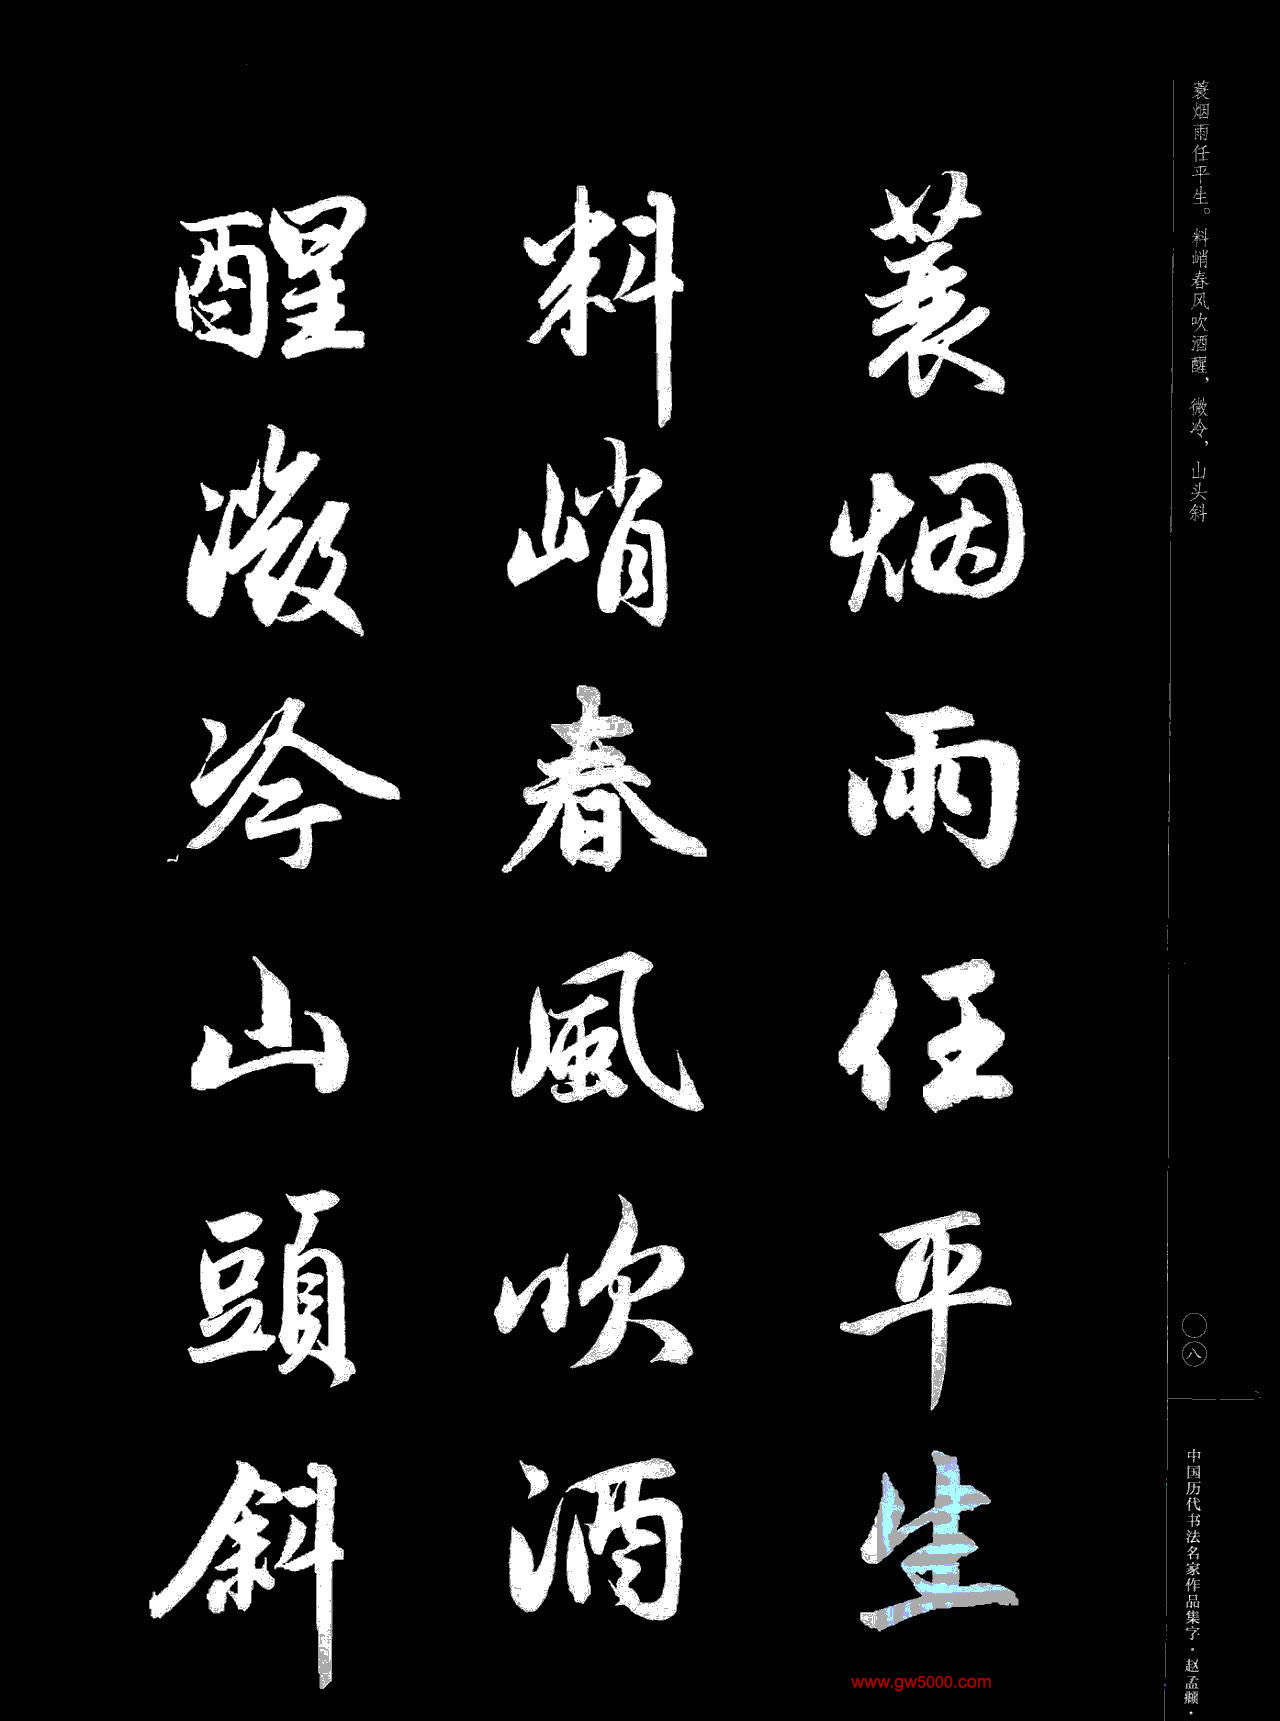 蓑烟雨任平生
料峭春風吹酒
醒微冷山頭斜
蓑烟雨任平生。料峭春风吹酒醒，微冷，山头斜
〇八
中国历代书法名家作品集字·赵孟頫·
www.gw5000.com